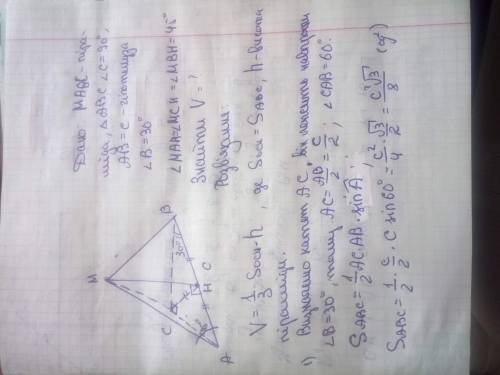 Дано: MABC - піра-
міда, △ABC ∠C=90°,
AB = c - гіпотенуза
∠B=30°
∠MAH=∠MCH=∠MBH=45°
Знайти V = ?
Розв'язання:
M
C
B
30°
A
H
C
V = 1/3 Sосн·h, де Sосн = SABC, h - висота
піраміди.
1) Визначимо катет AC, він лежить навпроти
∠B=30°, тому AC = AB/2 = c/2; ∠CAB=60°.
SABC = 1/2 AC·AB·sinA;
SABC = 1/2 · c/2 · c sin60° = c²/4 · √3/2 = c²√3/8